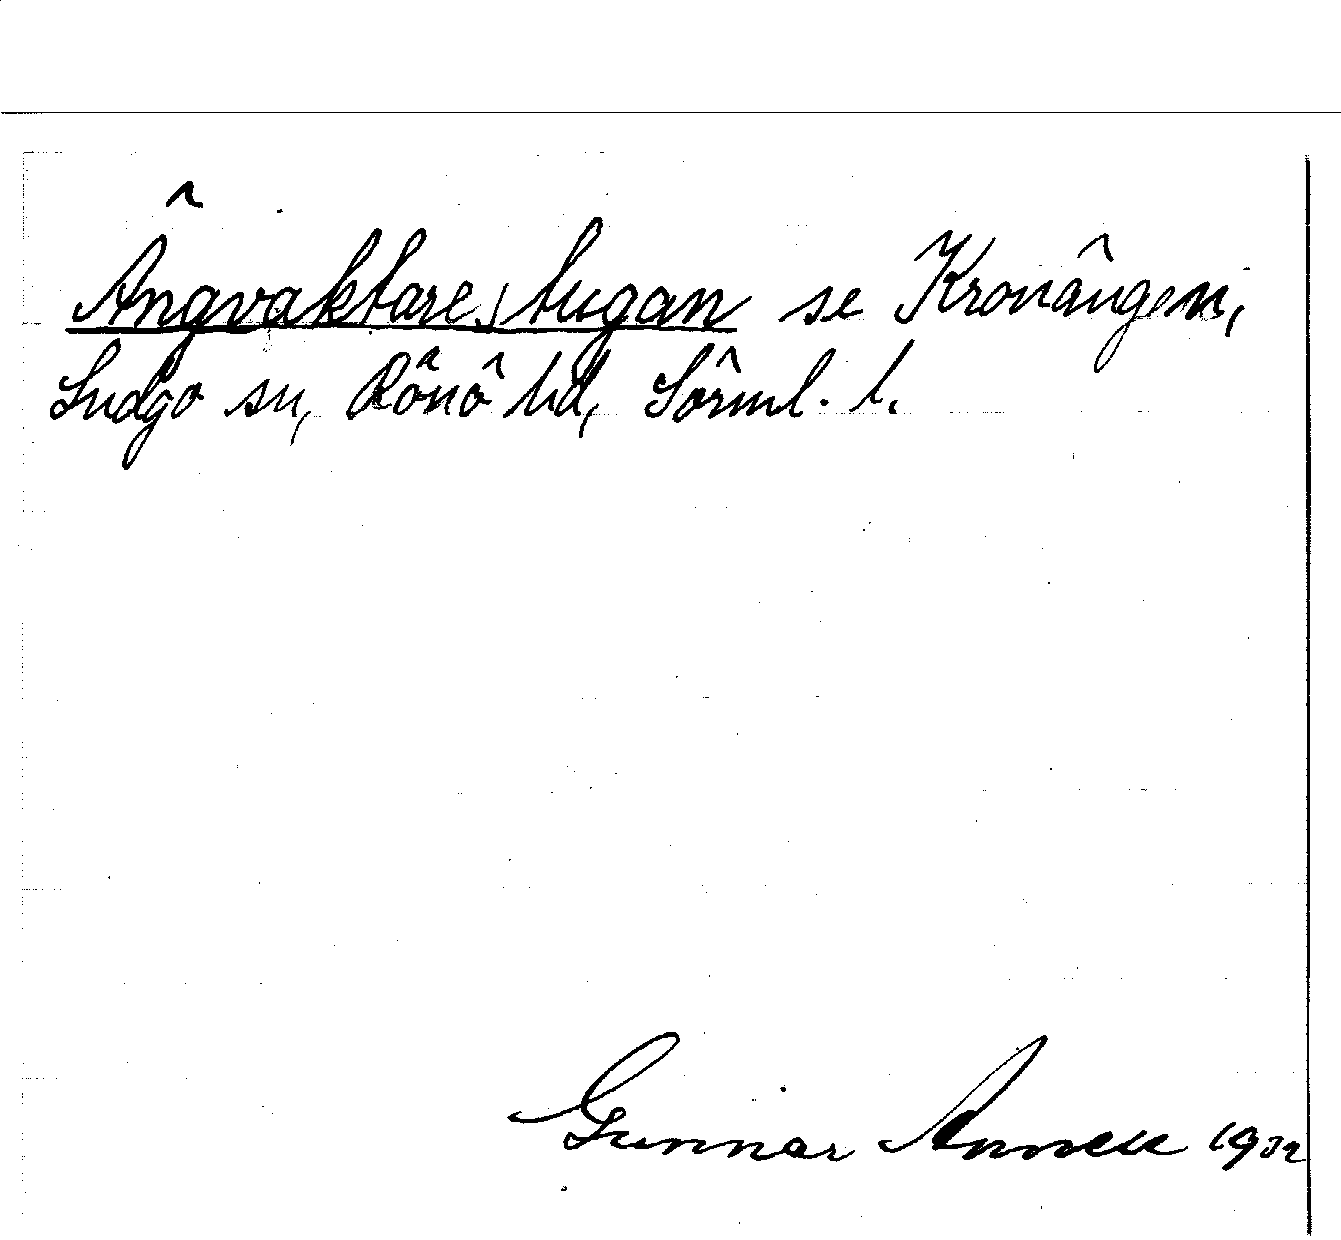 Ängvaktarestugan se Kronängen,
Ludgo sn, Rönö hd, Sörml. l.
Gunnar Annell 1932